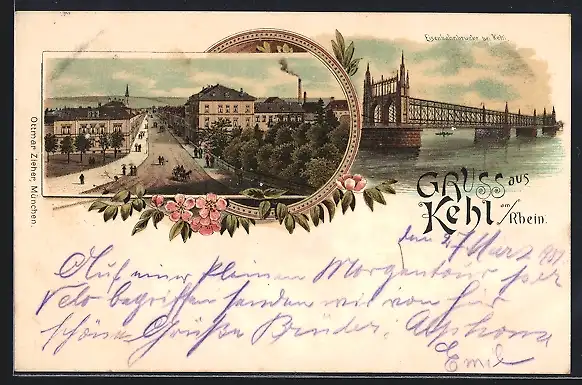 Eisenbahnbrücke bei Kehl
Ottmar Zieher, München.
GRUSS aus
Kehl am/Rhein.
den 27 März 901
Auf einer kleinen Morgentour per
Velo begriffen senden wir von hier
schöne Grüße Brüder: Alphons
Emil